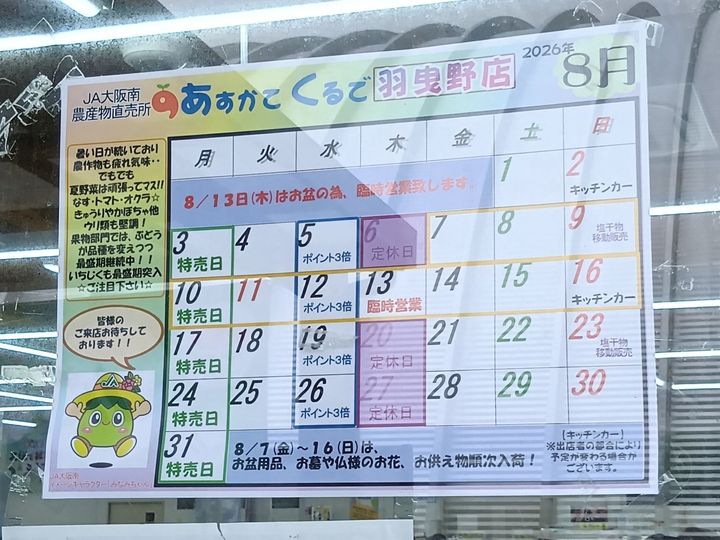 JA大阪南
農産物直売所
あすかてくるで
羽曳野店
2026年
8月
暑い日が続いており
農作物も疲れ気味・・
でもでも
夏野菜は頑張ってマス!!
なす・トマト・オクラ☆
きゅうりやかぼちゃ他
ウリ類も堅調!
果物部門では、ぶどう
が品種を変えつつ
最盛期継続中!!
いちじくも最盛期突入
☆ご注目下さい☆
皆様の
ご来店お待ちして
おります!!
JA大阪南
イメージキャラクター「みなみちゃん」
月 火 水 木 金 土 日
8/13日(木)はお盆の為、臨時営業致します。
1 2
キッチンカー
3 4 5 6 7 8 9
特売日 ポイント3倍 定休日 塩干物
移動販売
10 11 12 13 14 15 16
特売日 ポイント3倍 臨時営業 キッチンカー
17 18 19 20 21 22 23
特売日 ポイント3倍 定休日 塩干物
移動販売
24 25 26 27 28 29 30
特売日 ポイント3倍 定休日
31
特売日
8/7(金)~16(日)は、
お盆用品、お墓や仏様のお花、お供え物順次入荷!
【キッチンカー】
※出店者の都合により
予定が変わる場合が
ございます。
JA